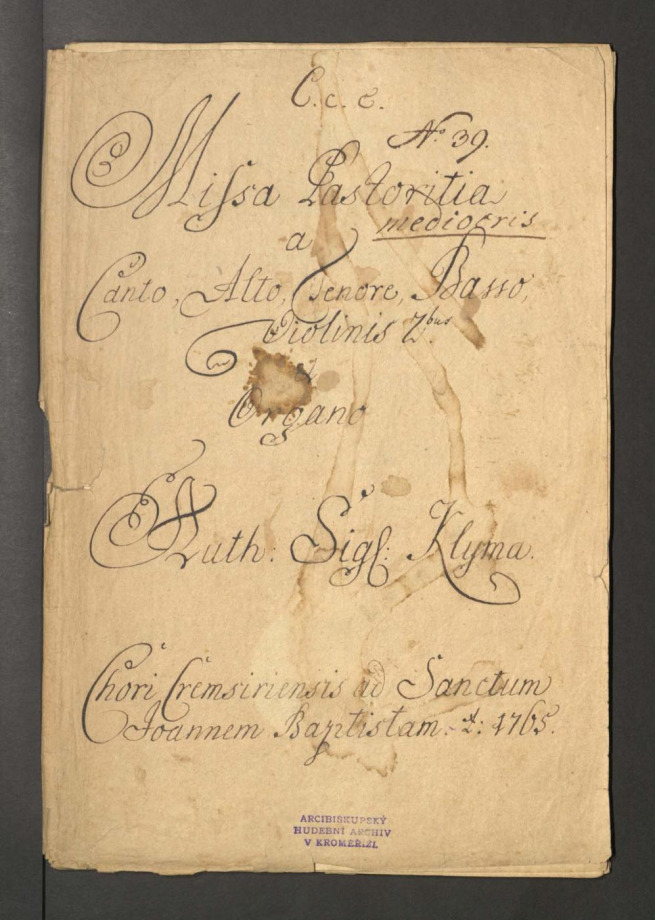 C. c. e.
No 39.
Missa Pastoritia
mediocris
a
Canto, Alto, Tenore, Basso,
Violinis 2bus
et
Organo
Auth: Sigf: Klyma.
Chori Cremsiriensis ad Sanctum
Joannem Baptistam. A: 1765.
ARCIBISKUPSKÝ
HUDEBNÍ ARCHIV
V KROMĚŘÍŽI